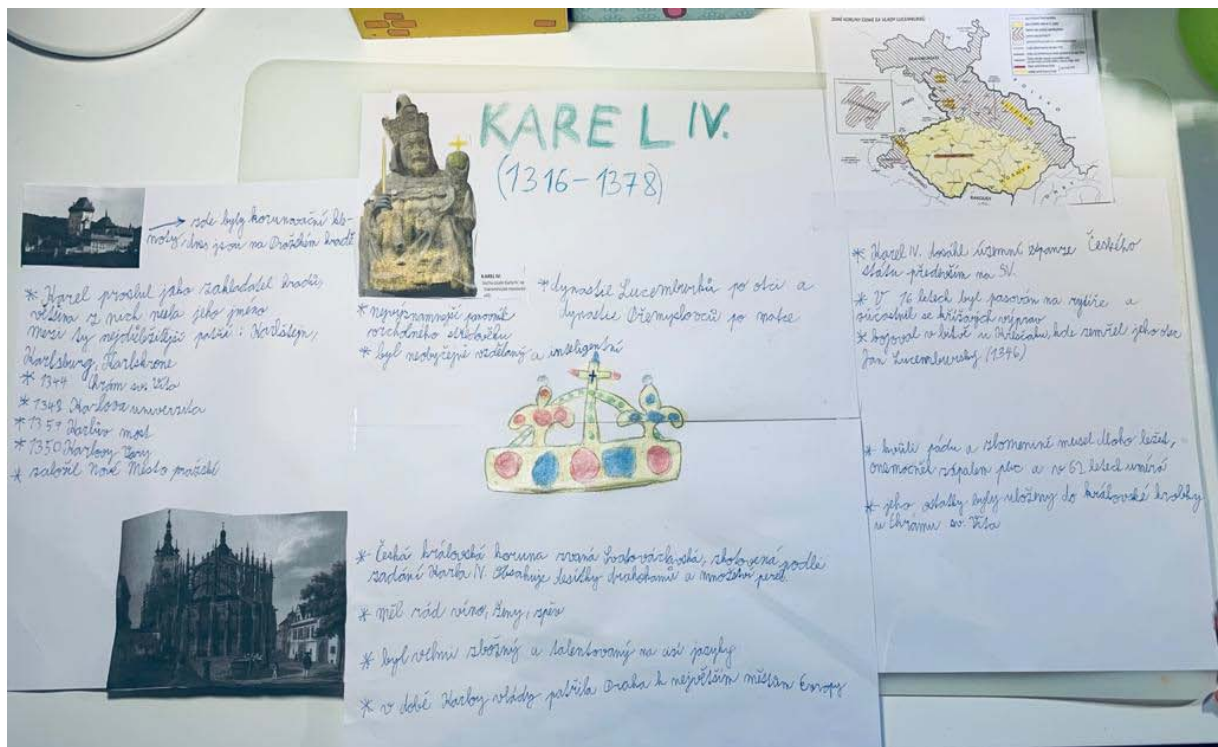 KAREL IV.
(1316-1378)
→ zde byly korunovační kle-
noty, dnes jsou na Pražském hradě
* Karel proslul jako zakladatel hradů,
většina z nich nesla jeho jméno
mezi ty nejdůležitější patří: Karlštejn,
Karlsburg, Karlskrone
* 1344 chrám sv. Víta
* 1348 Karlova univerzita
* 1357 Karlův most
* 1350 Karlovy Vary
* založil Nové Město pražské
KAREL IV.
* nejvýznamnější panovník
vrcholného středověku
* byl neobyčejně vzdělaný a inteligentní
* dynastie Lucemburků po otci a
dynastie Přemyslovců po matce
* Česká královská koruna zvaná Svatováclavská, zhotovená podle
zadání Karla IV. Obsahuje desítky drahokamů a množství perel.
* měl rád víno, ženy, zpěv
* byl velmi zbožný a talentovaný na cizí jazyky
* v době Karlovy vlády patřila Praha k největším městům Evropy
ZEMĚ KORUNY ČESKÉ ZA VLÁDY LUCEMBURKŮ
* Karel IV. dosáhl územní expanze Českého
státu především na SV.
* V 16 letech byl pasován na rytíře a
zúčastnil se křížových výprav
* bojoval v bitvě u Kresčaku, kde zemřel jeho otec
Jan Lucemburský (1346)
* kvůli pádu a zlomenině musel dloho ležet,
onemocněl zápalem plic a v 62 letech umírá
* jeho ostatky byly uloženy do královské hrobky
u Chrámu sv. Víta